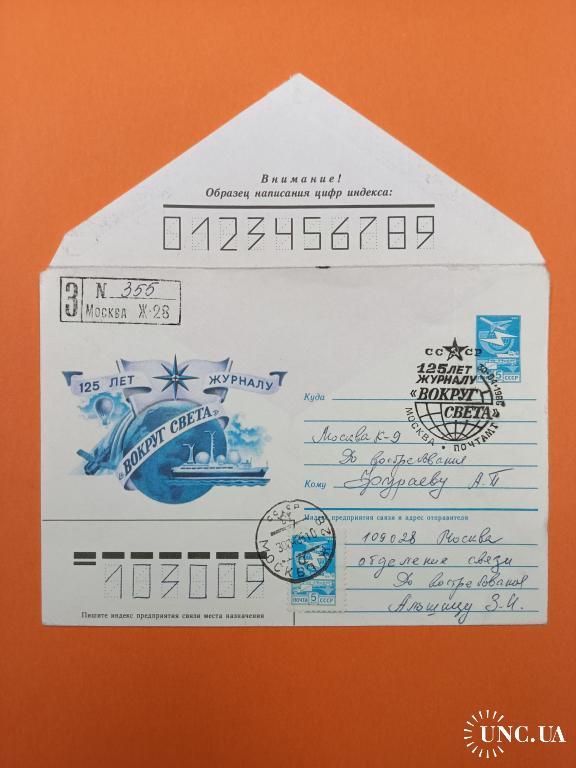 Внимание!
Образец написания цифр индекса:
0123456789
З N 355
Москва Ж-28
125 ЛЕТ ЖУРНАЛУ
«ВОКРУГ СВЕТА»
5 СССР
СССР
125 ЛЕТ
ЖУРНАЛУ
«ВОКРУГ
СВЕТА»
МОСКВА • ПОЧТАМТ
30-04-1986
Куда
Москва К-9
До востребования
Кому
А.П
Индекс предприятия связи и адрес отправителя
109028 Москва
отделение связи
До востребования
Альшицу З.И.
СССР
МОСКВА Ж 28
ПОЧТА 5 СССР
103009
Пишите индекс предприятия связи места назначения
UNC.UA